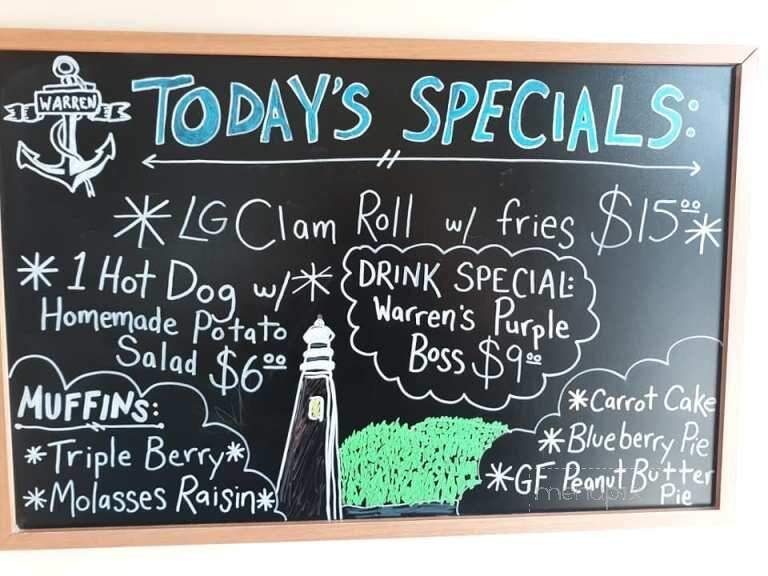 WARREN
TODAY'S SPECIALS:
* LG Clam Roll w/ fries $15.00 *
* 1 Hot Dog w/ *
Homemade Potato
Salad $6.00
DRINK SPECIAL:
Warren's Purple
Boss $9.00
MUFFINS:
* Triple Berry *
* Molasses Raisin *
* Carrot Cake
* Blueberry Pie
* GF Peanut Butter
Pie
menupix